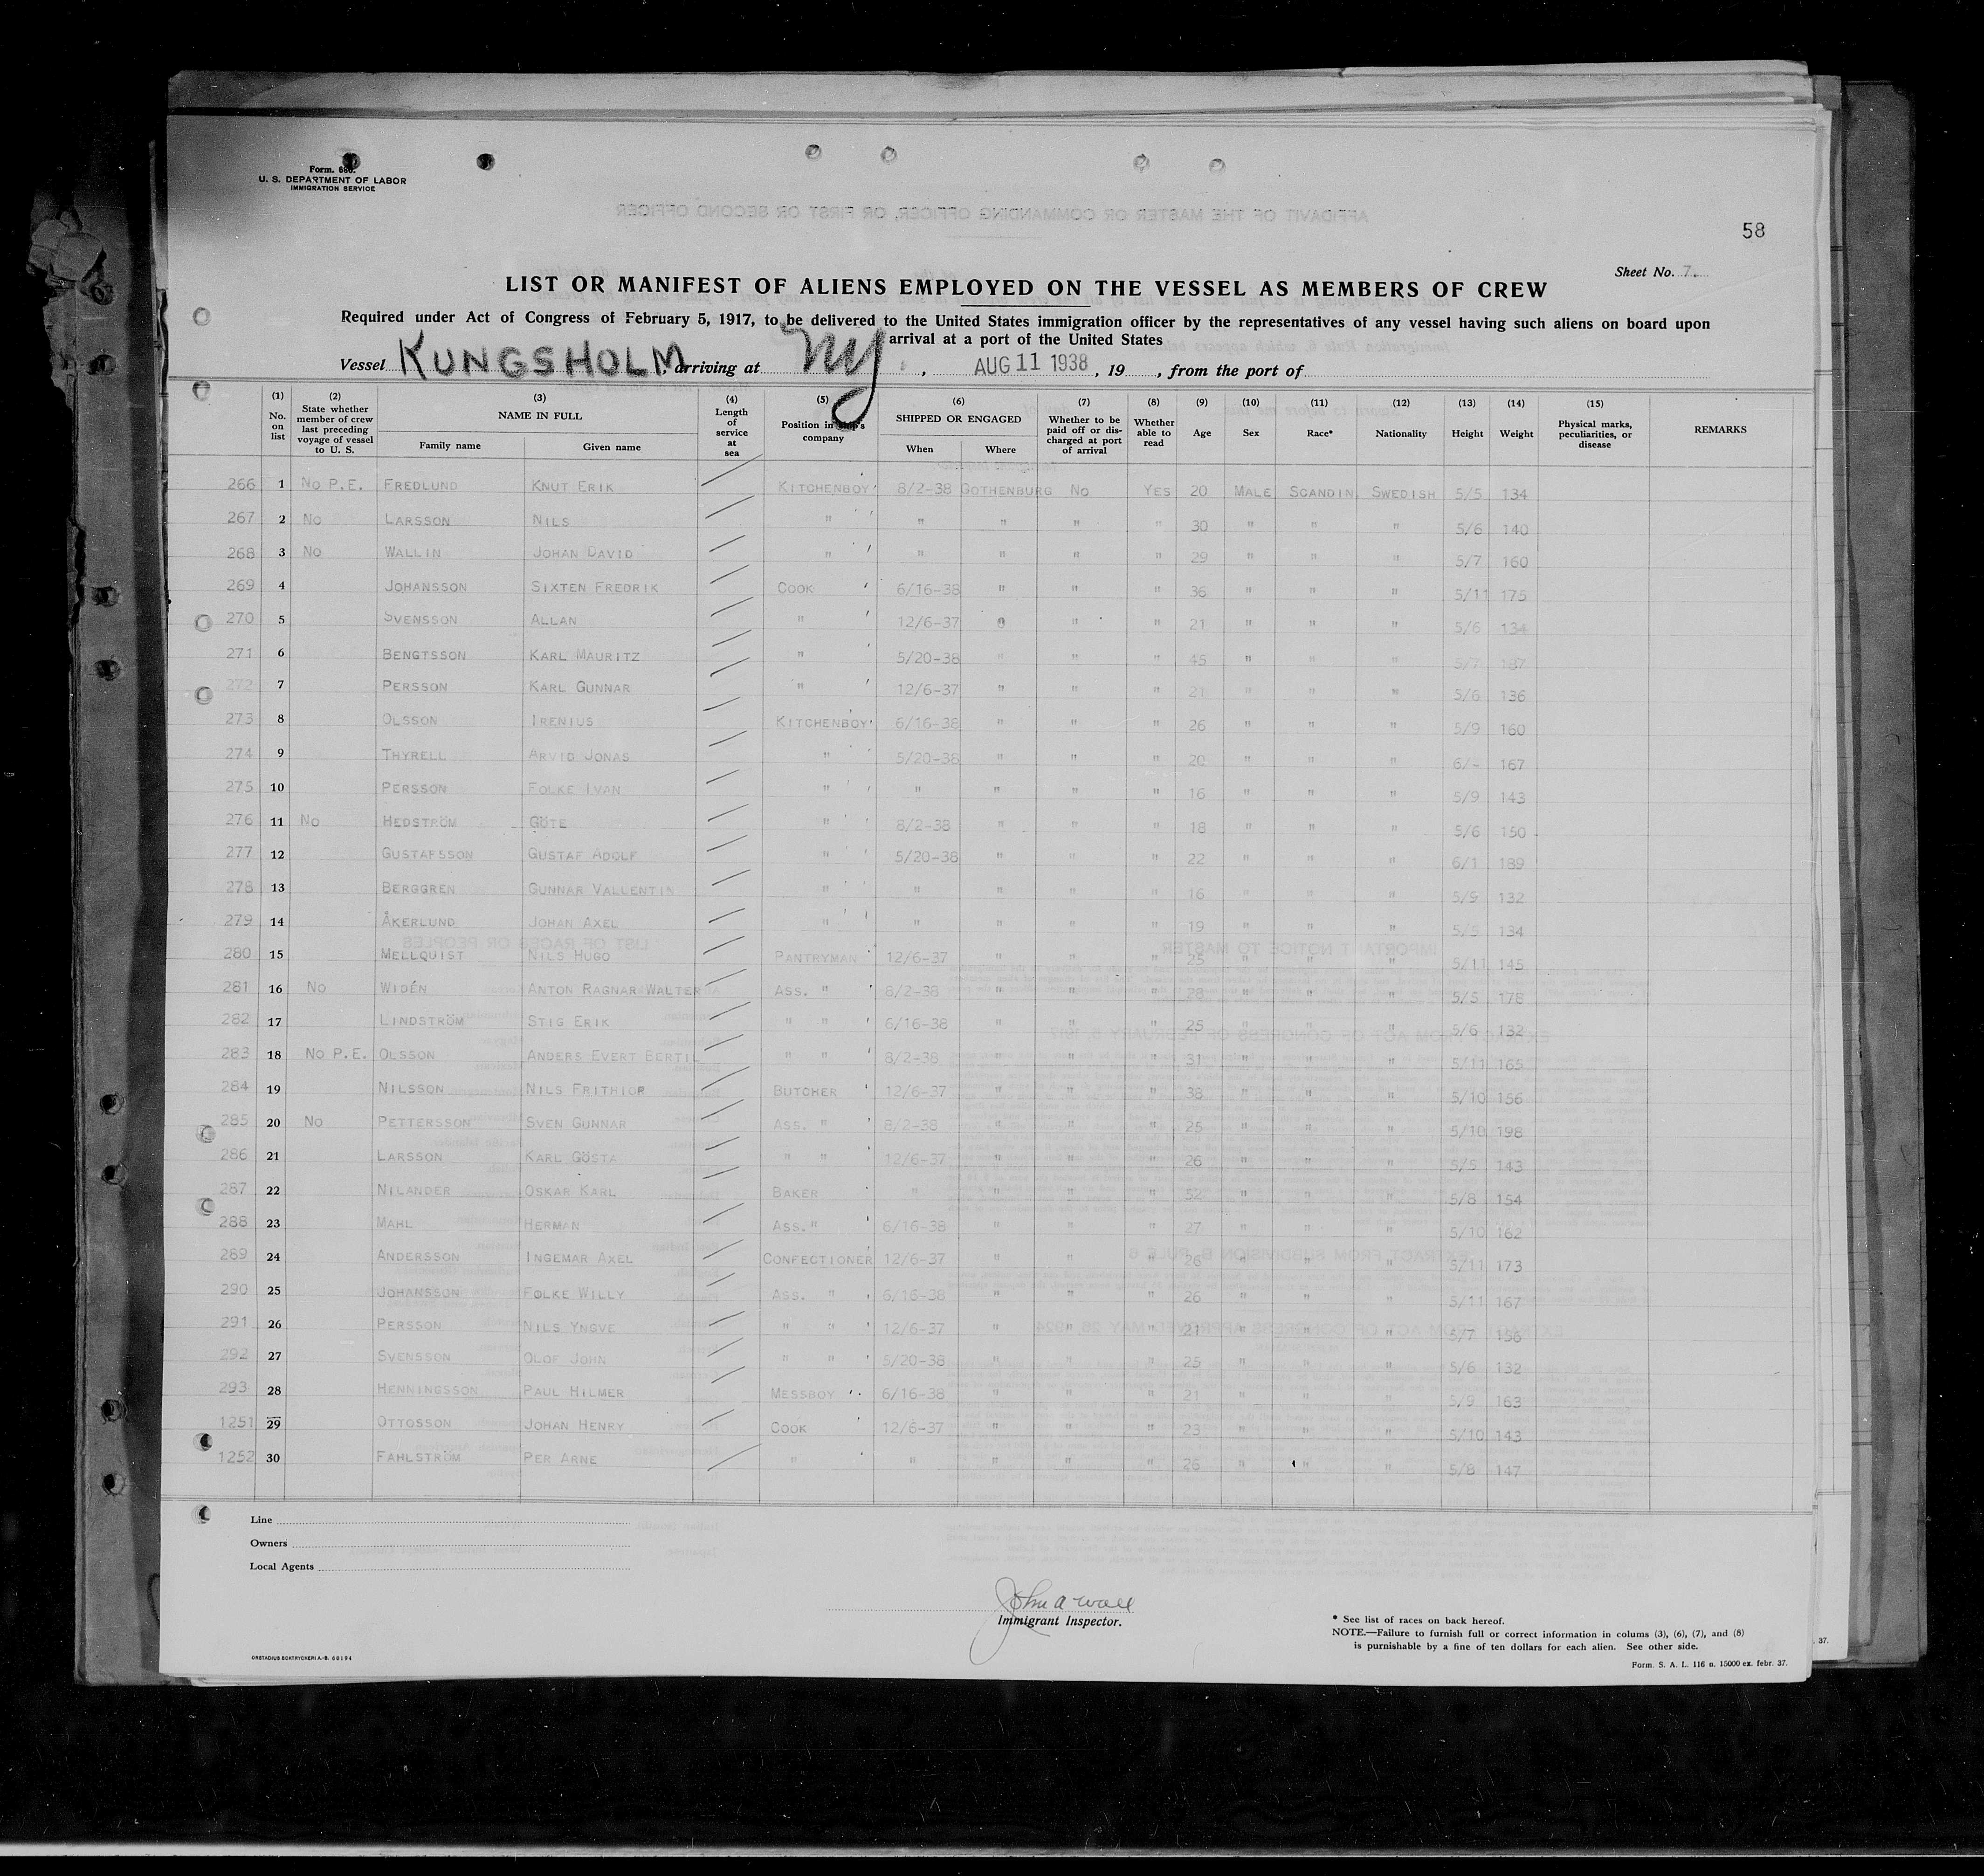 Form. 680.
U. S. DEPARTMENT OF LABOR
IMMIGRATION SERVICE
58
Sheet No. 7.
LIST OR MANIFEST OF ALIENS EMPLOYED ON THE VESSEL AS MEMBERS OF CREW
Required under Act of Congress of February 5, 1917, to be delivered to the United States immigration officer by the representatives of any vessel having such aliens on board upon
arrival at a port of the United States
Vessel KUNGSHOLM, arriving at NY, AUG 11 1938, 19, from the port of
(1) No. on list (2) State whether member of crew last preceding voyage of vessel to U. S. (3) NAME IN FULL Family name Given name (4) Length of service at sea (5) Position in ship's company (6) SHIPPED OR ENGAGED When Where (7) Whether to be paid off or discharged at port of arrival (8) Whether able to read (9) Age (10) Sex (11) Race* (12) Nationality (13) Height (14) Weight (15) Physical marks, peculiarities, or disease REMARKS
266 1 NO P.E. FREDLUND KNUT ERIK KITCHENBOY 8/2-38 GOTHENBURG NO YES 20 MALE SCANDIN. SWEDISH 5/5 134
267 2 NO LARSSON NILS " " " " " 30 " " " 5/6 140
268 3 NO WALLIN JOHAN DAVID " " " " " 29 " " " 5/7 160
269 4 JOHANSSON SIXTEN FREDRIK COOK 6/16-38 " " " 36 " " " 5/11 175
270 5 SVENSSON ALLAN " 12/6-37 " " " 21 " " " 5/6 134
271 6 BENGTSSON KARL MAURITZ " 5/20-38 " " " 45 " " " 5/7 187
272 7 PERSSON KARL GUNNAR " 12/6-37 " " " 21 " " " 5/6 136
273 8 OLSSON IRENIUS KITCHENBOY 6/16-38 " " " 26 " " " 5/9 160
274 9 THYRELL ARVID JONAS " 5/20-38 " " " 20 " " " 6/- 167
275 10 PERSSON FOLKE IVAN " " " " " 16 " " " 5/9 143
276 11 NO HEDSTRÖM GÖTE " 8/2-38 " " " 18 " " " 5/6 150
277 12 GUSTAFSSON GUSTAF ADOLF " 5/20-38 " " " 22 " " " 6/1 189
278 13 BERGGREN GUNNAR VALLENTIN " " " " " 16 " " " 5/9 132
279 14 ÅKERLUND JOHAN AXEL " " " " " 19 " " " 5/5 134
280 15 MELLQUIST NILS HUGO PANTRYMAN 12/6-37 " " " 25 " " " 5/11 145
281 16 NO WIDÉN ANTON RAGNAR WALTER ASS. " 8/2-38 " " " 28 " " " 5/5 178
282 17 LINDSTRÖM STIG ERIK " " 6/16-38 " " " 25 " " " 5/6 132
283 18 NO P.E. OLSSON ANDERS EVERT BERTIL " " 8/2-38 " " " 31 " " " 5/11 165
284 19 NILSSON NILS FRITHIOF BUTCHER 12/6-37 " " " 38 " " " 5/10 156
285 20 NO PETTERSSON SVEN GUNNAR ASS. " 8/2-38 " " " 25 " " " 5/10 198
286 21 LARSSON KARL GÖSTA " " 12/6-37 " " " 26 " " " 5/5 143
287 22 NILANDER OSKAR KARL BAKER " " " " 52 " " " 5/8 154
288 23 MAHL HERMAN ASS. " 6/16-38 " " " 27 " " " 5/10 162
289 24 ANDERSSON INGEMAR AXEL CONFECTIONER 12/6-37 " " " 26 " " " 5/11 173
290 25 JOHANSSON FOLKE WILLY ASS. " 6/16-38 " " " 26 " " " 5/11 167
291 26 PERSSON NILS YNGVE " " 12/6-37 " " " 21 " " " 5/7 156
292 27 SVENSSON OLOF JOHN " " 5/20-38 " " " 25 " " " 5/6 132
293 28 HENNINGSSON PAUL HILMER MESSBOY 6/16-38 " " " 21 " " " 5/9 163
1251 29 OTTOSSON JOHAN HENRY COOK 12/6-37 " " " 23 " " " 5/10 143
1252 30 FAHLSTRÖM PER ARNE " " " " " 26 " " " 5/8 147
Line
Owners
Local Agents
John A Wall
Immigrant Inspector.
* See list of races on back hereof.
NOTE.—Failure to furnish full or correct information in colums (3), (6), (7), and (8)
is punishable by a fine of ten dollars for each alien. See other side.
ORSTADIUS BOKTRYCKERI A.-B. 60194
Form. S. A. L. 116 n. 15000 ex. febr. 37.
37.